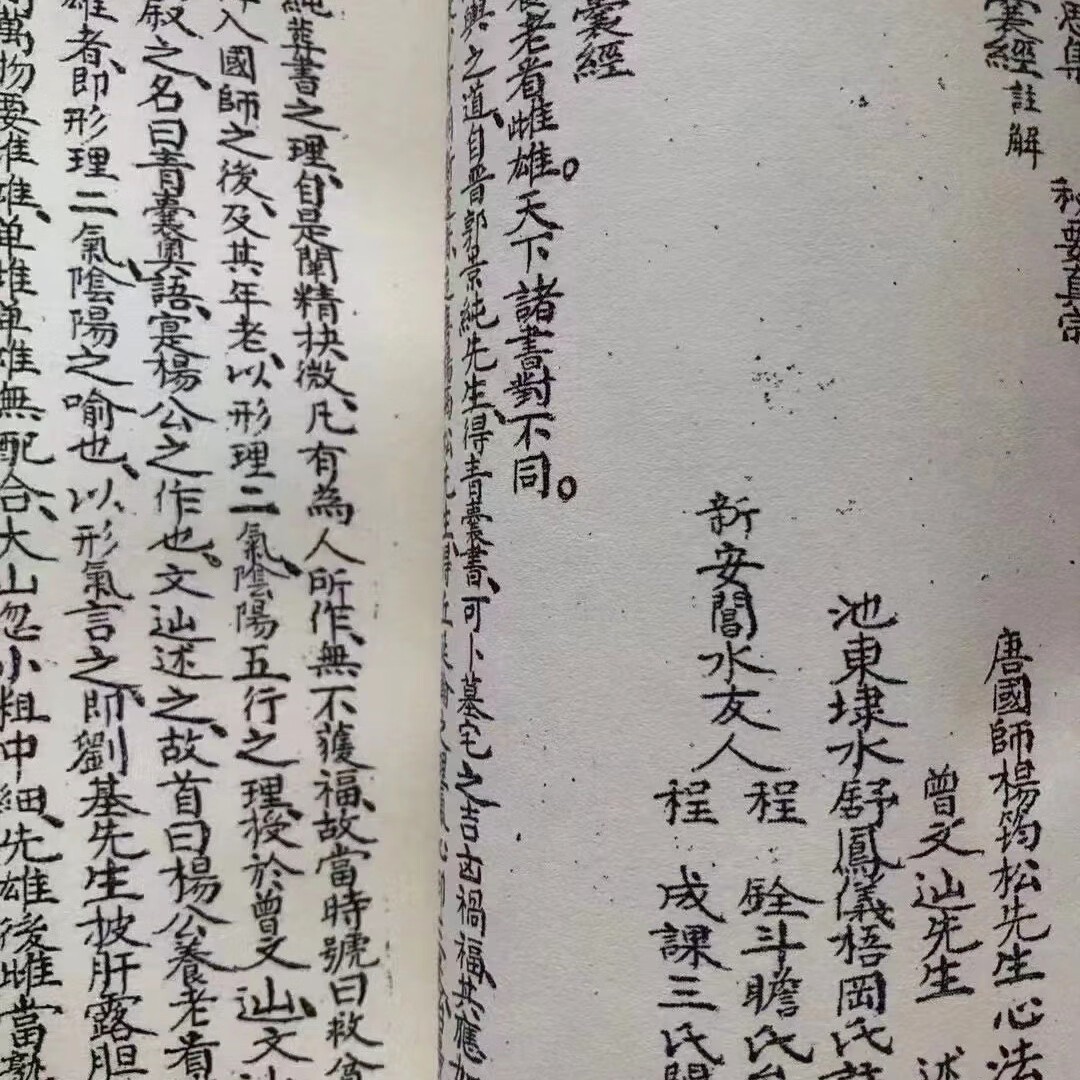 思集
囊經註解 秘要真宗
唐國師楊筠松先生心法
曾文辿先生 述
池東埭水舒鳳儀梧岡氏
新安閶水友人
程 銓斗瞻氏
程 成課三氏
囊經
養老看雌雄。天下諸書對不同。
輿之道自晉郭景純先生、得青囊書、可卜墓宅之吉凶禍福、其應如
純葬書之理、自是闡精抉微、凡有為人所作、無不獲福、故當時號曰救貧
入國師之後、及其年老、以形理二氣陰陽五行之理、授於曾文辿、文辿
叙之、名曰青囊奧語、寔楊公之作也、文辿述之、故首曰楊公養老看
雄者、即形理二氣陰陽之喻也、以形氣言之、即劉基先生披肝露胆
萬物要雄雄、单雌单雄無配合、大山忽小粗中細、先雄後雌當